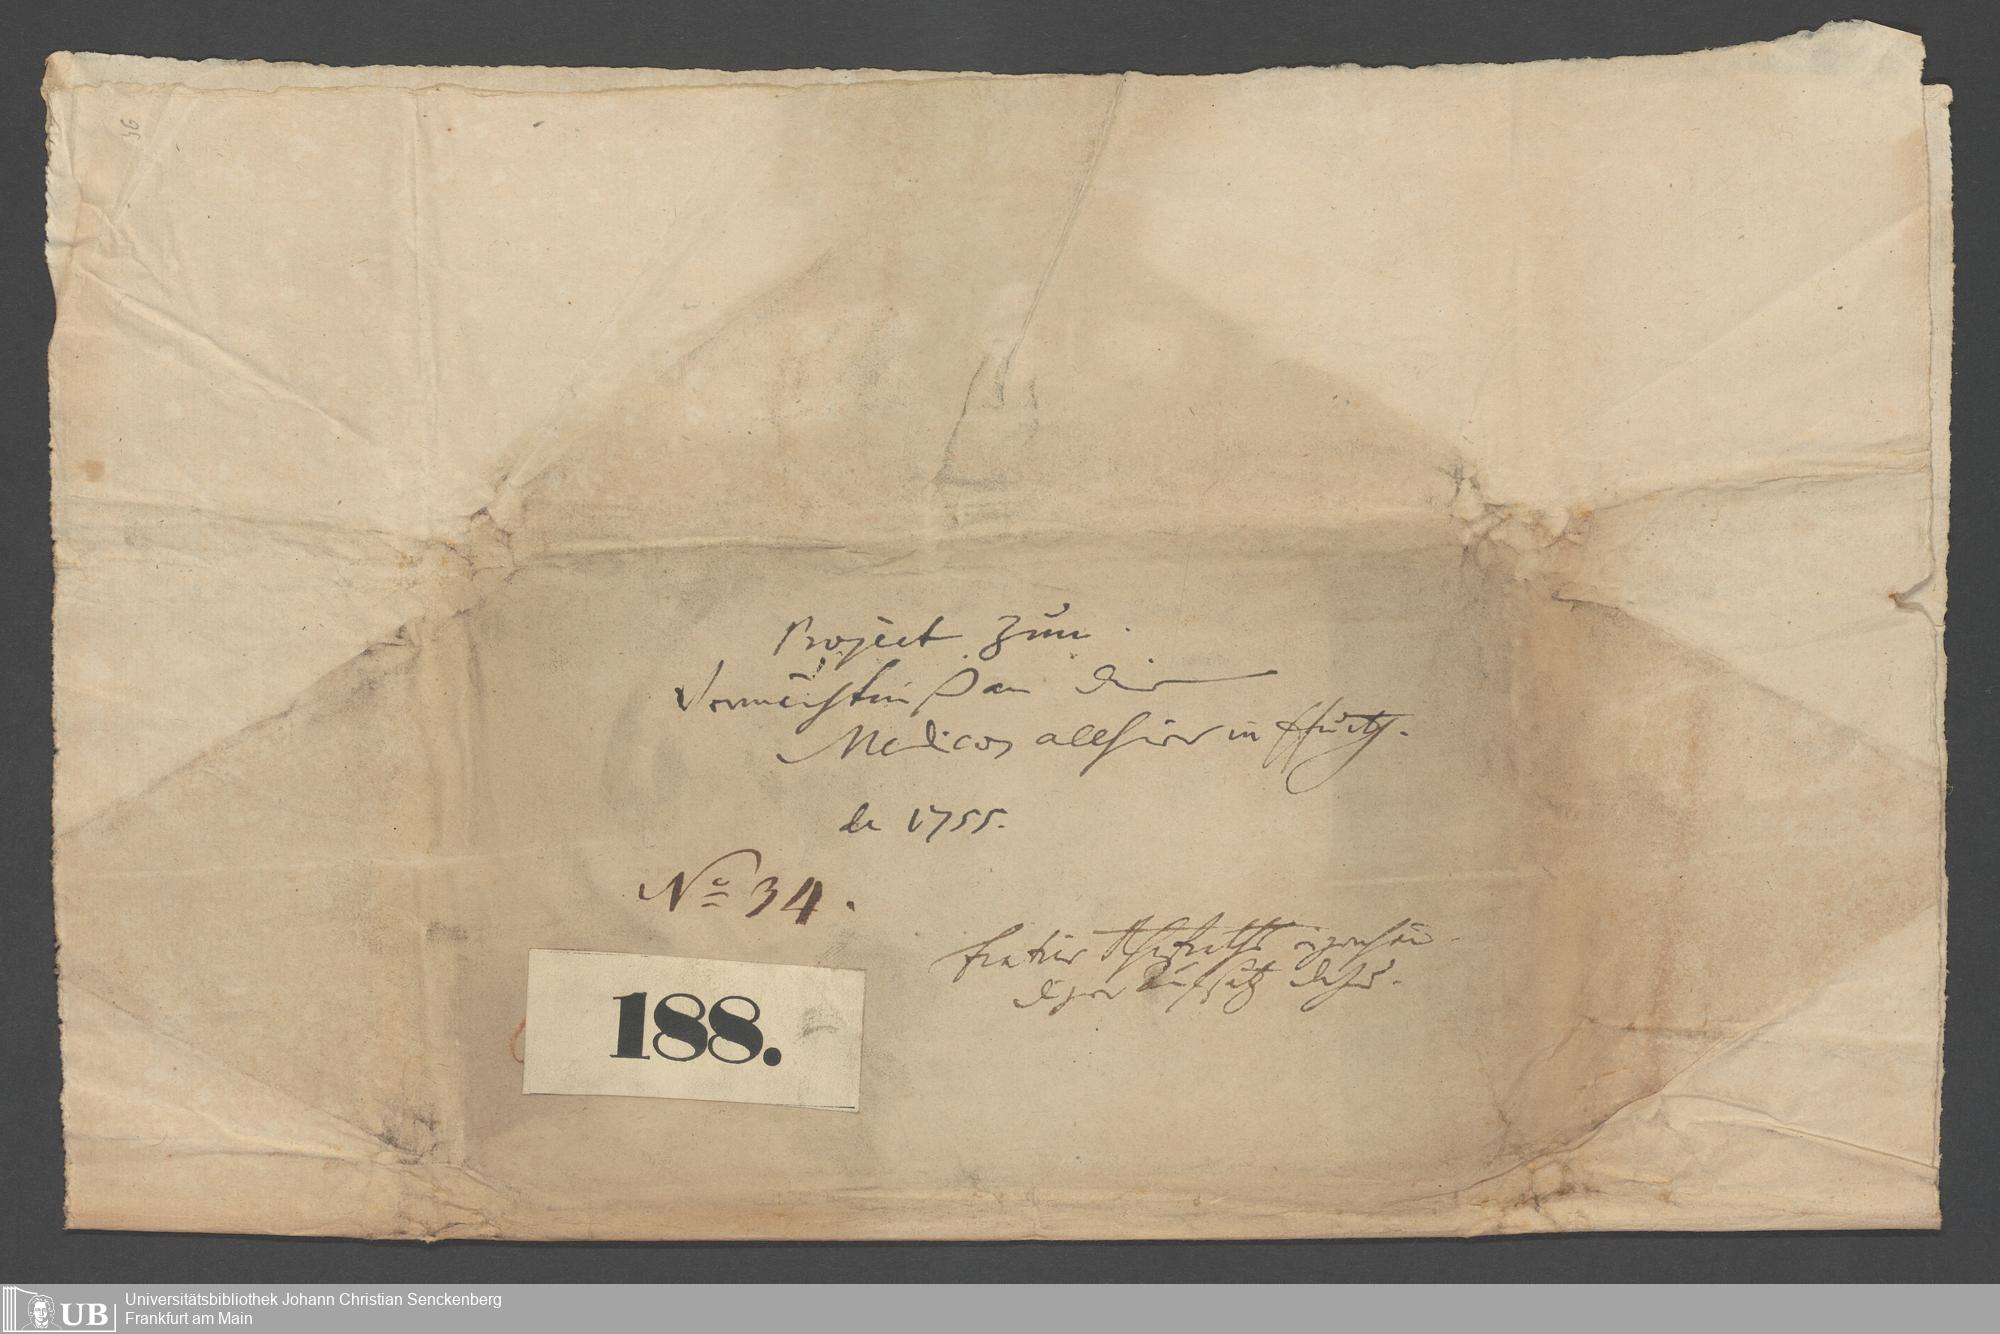 36
Project zum
Vermächtniß an die
Medicos allhier in ffurth.
de 1755.
No 34.
fratris
dißer Aufsatz
188.
UB
Universitätsbibliothek Johann Christian Senckenberg
Frankfurt am Main